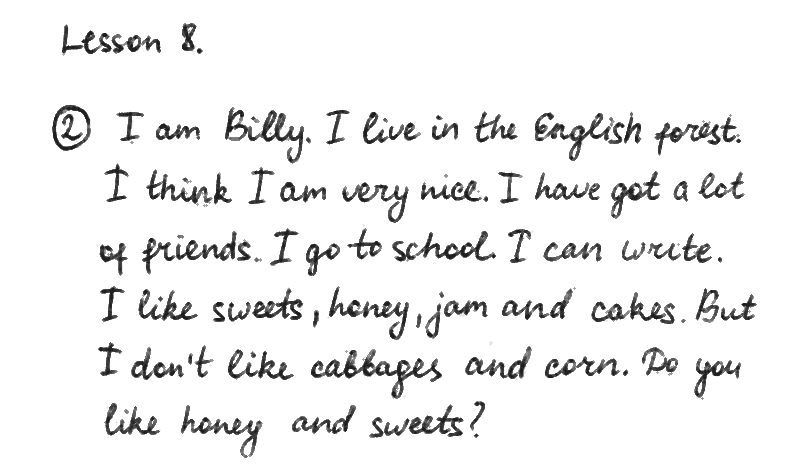 Lesson 8.
② I am Billy. I live in the English forest.
I think I am very nice. I have got a lot
of friends. I go to school. I can write.
I like sweets, honey, jam and cakes. But
I don't like cabbages and corn. Do you
like honey and sweets?